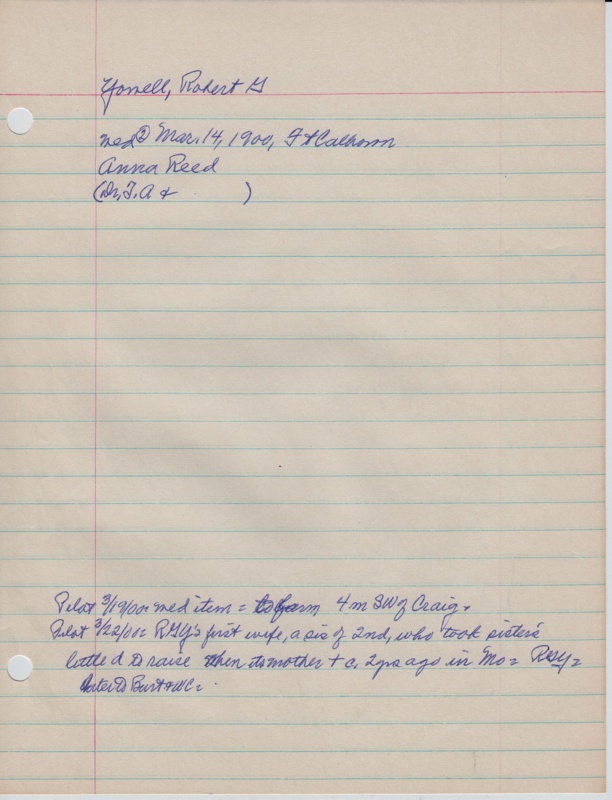 Yowell, Robert G
wed ② Mar. 14, 1900, Ft Calhoun
Anna Reed
(Dr. T. A +          )
Pilot 3/19/00: wed item = to farm 4 m SW of Craig.
Pilot 3/22/00: RGY's first wife, a sis of 2nd, who took sister's
little d to raise when its mother + c. 2 yrs ago in Mo = RGY =
to Burt + WC =